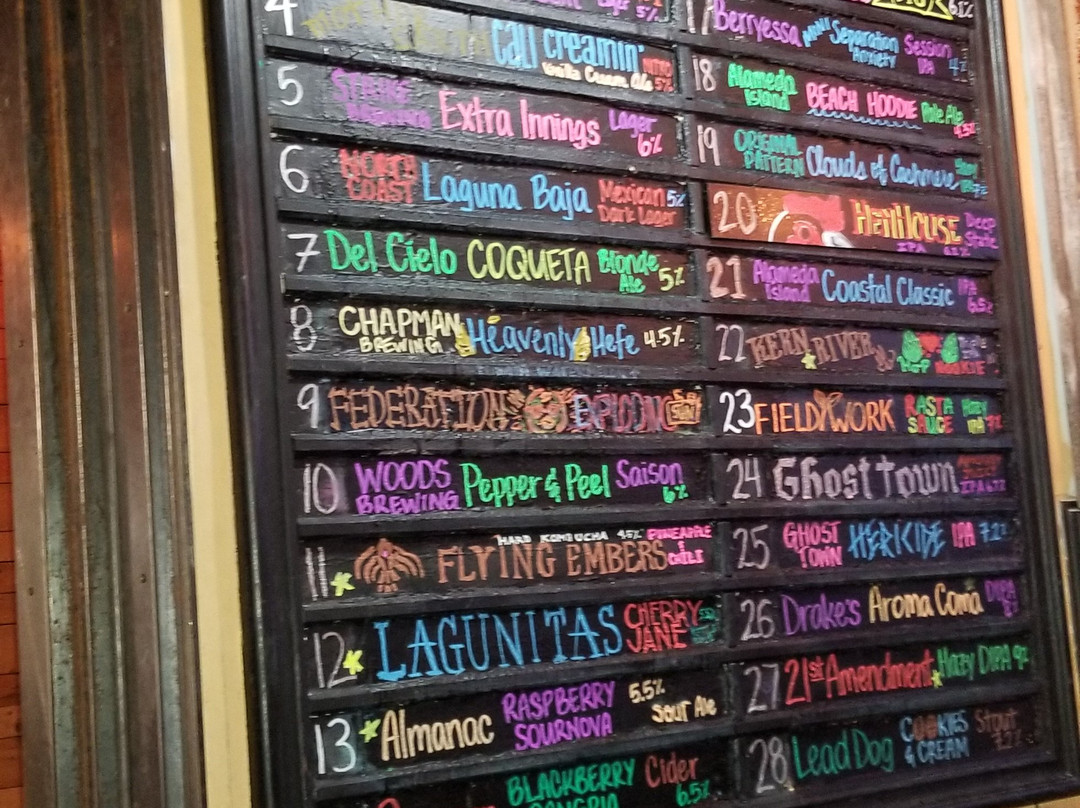 4 Cali Creamin' NITRO
Vanilla Cream Ale 5%
5 STRIKE BREWING Extra Innings Lager 6%
6 NORTH COAST Laguna Baja Mexican Dark Lager 5%
7 Del Cielo COQUETA Blonde Ale 5%
8 CHAPMAN BREWING Heavenly Hefe 4.5%
9 FEDERATION EXPLODING
10 WOODS BREWING Pepper & Peel Saison 6%
11 HARD KOMBUCHA 4.5% PINEAPPLE & CHILI
FLYING EMBERS
12 LAGUNITAS CHERRY JANE
13 Almanac RASPBERRY SOURNOVA 5.5% Sour Ale
BLACKBERRY Cider 6.5%
17 Berryessa Mini Separation Anxiety Session IPA
18 Alameda Island BEACH HOODIE Pale Ale 4.5%
19 ORIGINAL PATTERN Clouds of Cashmere
20 HenHouse Deep State
IPA
21 Alameda Island Coastal Classic IPA 6.5%
22 KERN RIVER HOP NOOKIE
23 FIELDWORK RASTA SAUCE Hazy IPA 7%
24 Ghost town IPA
25 GHOST TOWN HERICIDE IPA 7.2%
26 Drake's Aroma Coma DIPA
27 21st Amendment Hazy DIPA 9%
28 Lead Dog COOKIES & CREAM Stout